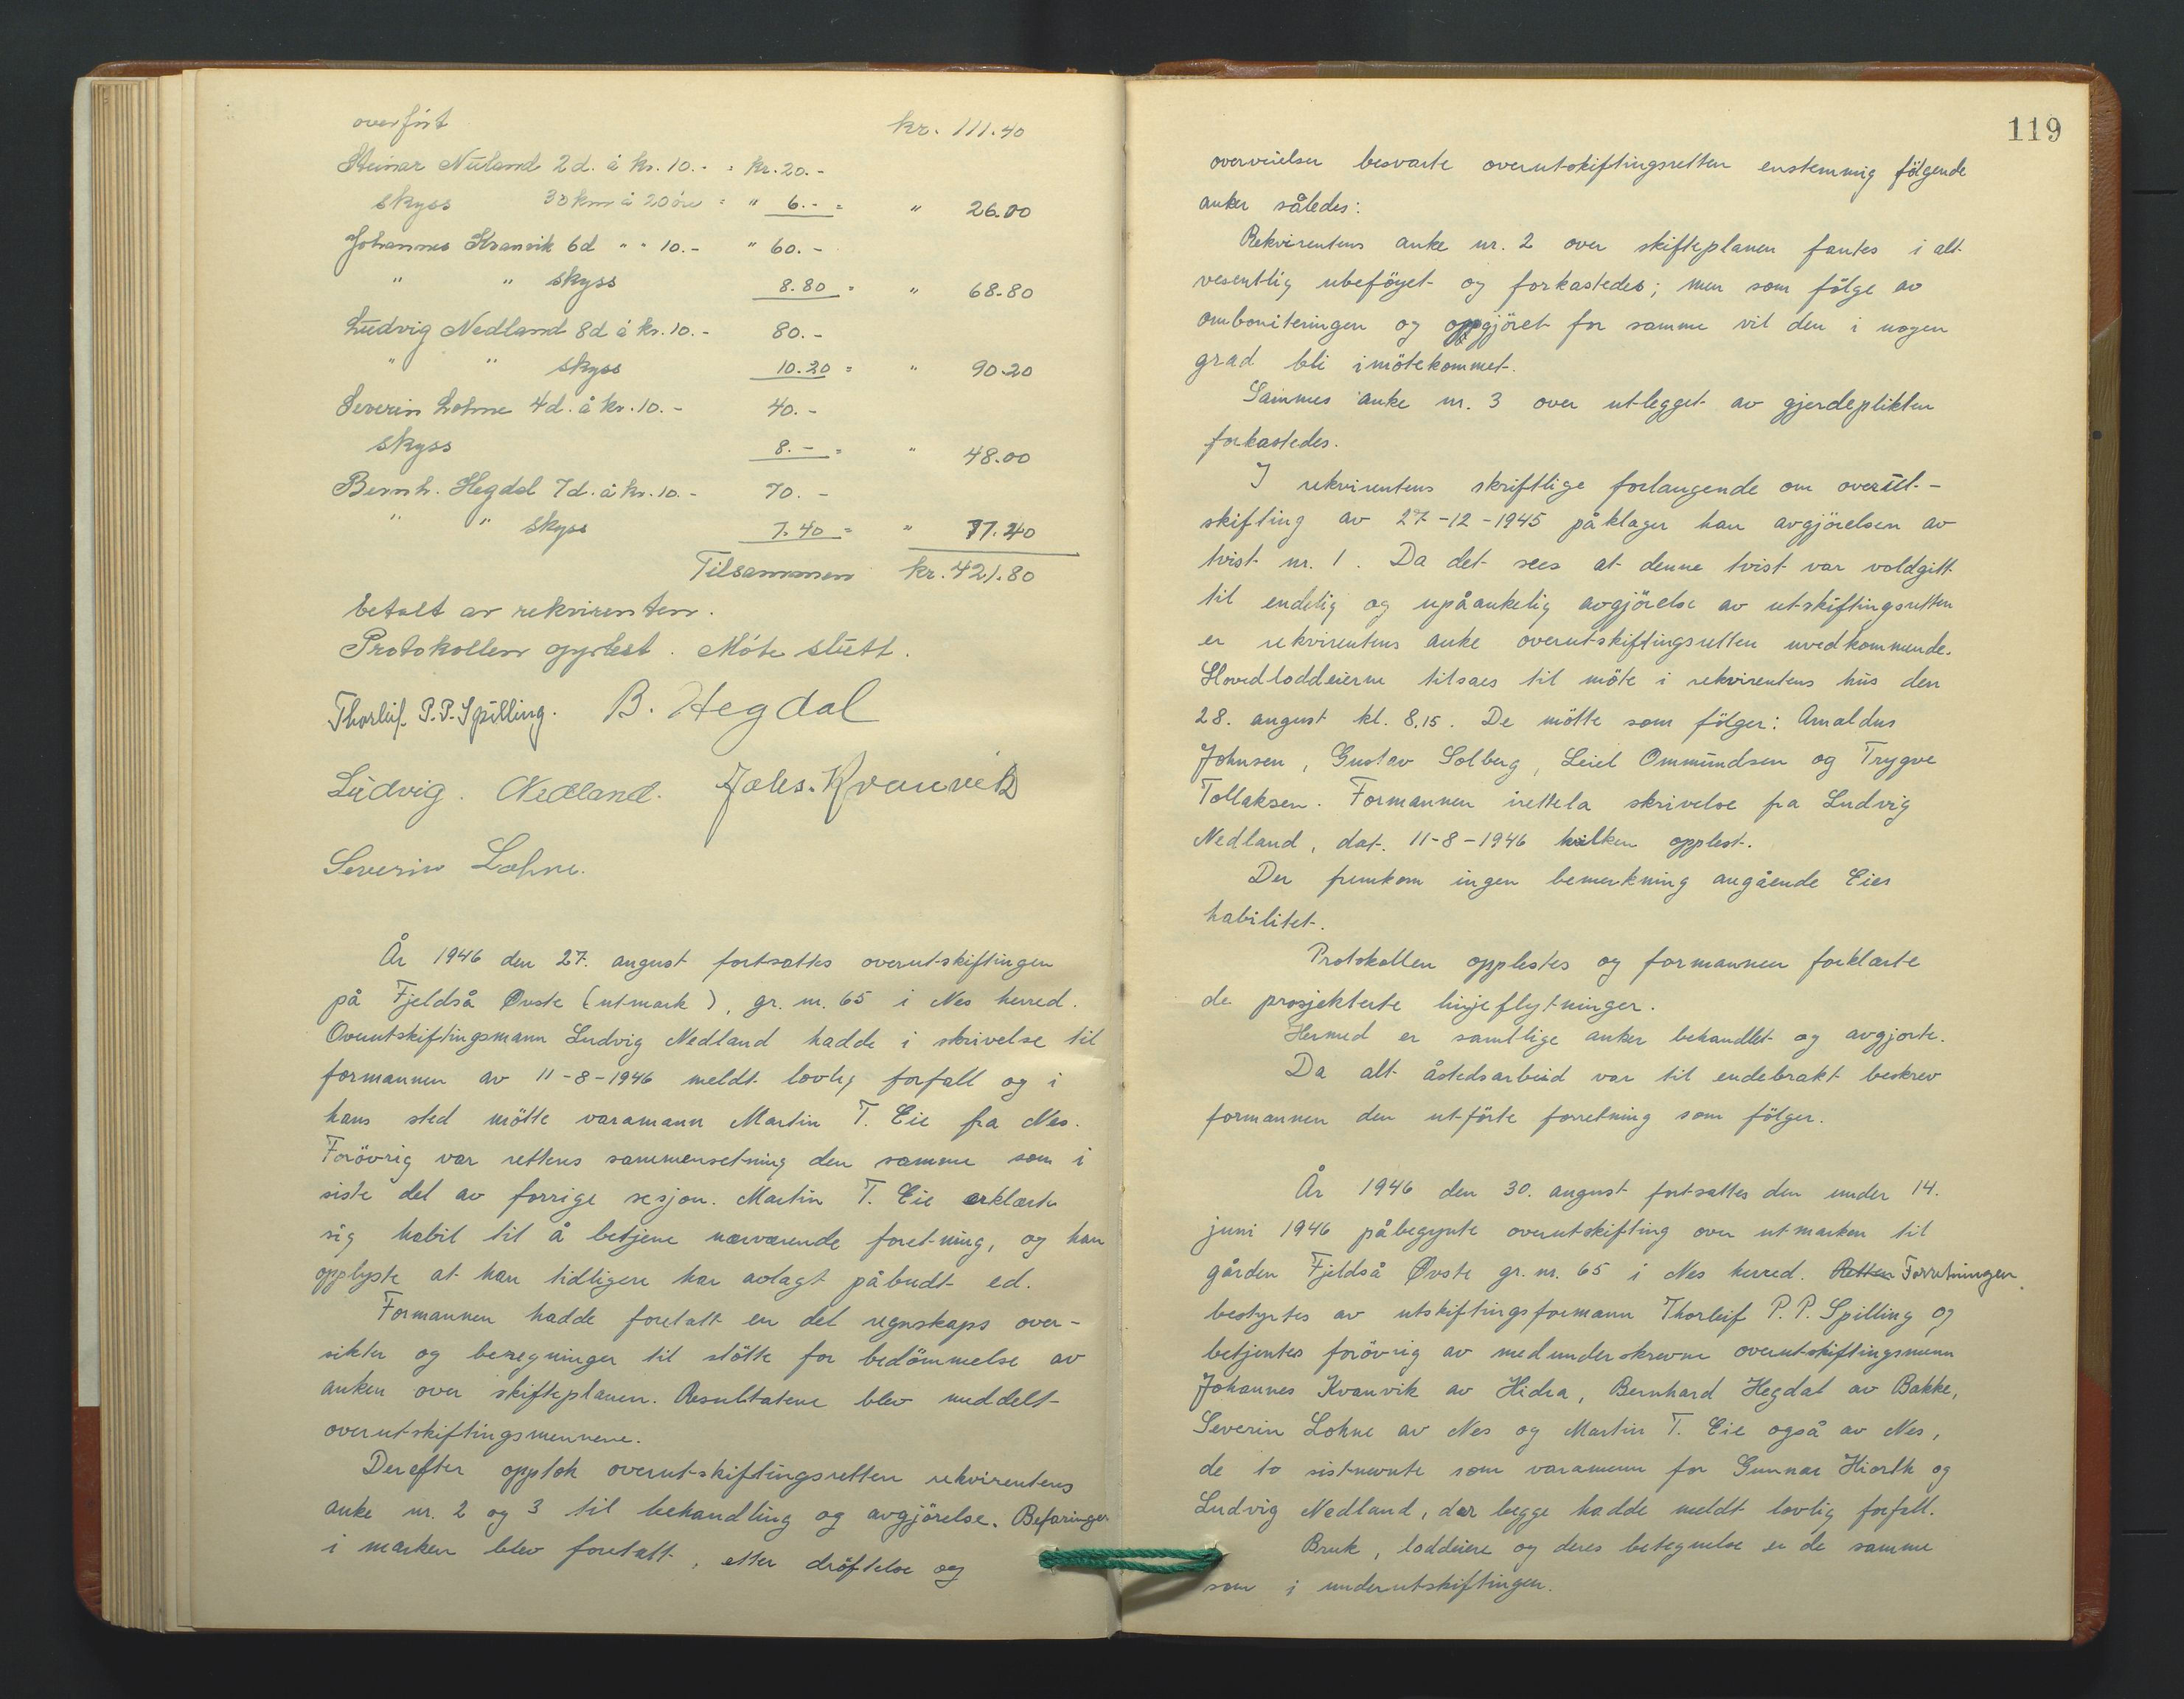 overført kr. 111.40
Steinar Nuland 2 d. à kr. 10.- = kr. 20.-
skyss 30 km à 20 øre = " 6.- = " 26.00
Johannes Kvanvik 6 d " " 10.- " 60.-
" " skyss 8.80 = " 68.80
Ludvig Nedland 8 d à kr. 10.- 80.-
" " skyss 10.20 = " 90.20
Severin Lohne 4 d. à kr. 10.- 40.-
skyss 8.- = " 48.00
Bernh. Hegdal 7 d. à kr. 10.- 70.-
" " skyss 7.40 = " 77.40
Tilsammen kr. 421.80
betalt av rekvirenten.
Protokollen opplest. Møte slutt.
Thorleif P.P. Spilling. B. Hegdal
Ludvig. Nedland. Johs. Kvanvik
Severin Lohne.
År 1946 den 27. august fortsattes overutskiftingen
på Fjeldså Øvste (utmark), gr. nr. 65 i Nes herred.
Overutskiftingsmann Ludvig Nedland hadde i skrivelse til
formannen av 11-8-1946 meldt lovlig forfall og i
hans sted møtte varamann Martin T. Eie fra Nes.
Forøvrig var rettens sammensetning den samme som i
siste del av forrige sesjon. Martin T. Eie erklærte
sig habil til å betjene nærværende foretning, og han
opplyste at han tidligere har avlagt påbudt ed.
Formannen hadde foretatt en del regnskaps over-
sikter og beregninger til støtte for bedømmelse av
anken over skifteplanen. Resultatene blev meddelt
overutskiftingsmennene.
Derefter opptok overutskiftingsretten rekvirentens
anke nr. 2 og 3 til behandling og avgjørelse. Befaringer
i marken blev foretatt, etter drøftelse og
119
overveielser besvarte overutskiftingsretten enstemmig følgende
anker således:
Rekvirentens anke nr. 2 over skifteplanen fantes i alt
vesentlig ubeføyet og forkastedes; men som følge av
omboniteringen og oppgjøret for samme vil den i nogen
grad bli imøtekommet.
Sammes anke nr. 3 over utlegget av gjerdeplikten
forkastedes.
I rekvirentens skriftlige forlangende om overut-
skifting av 27-12-1945 påklager han avgjørelsen av
tvist nr. 1. Da det sees at denne tvist var voldgitt
til endelig og upåankelig avgjørelse av utskiftingsretten
er rekvirentens anke overutskiftingsretten uvedkommende.
Hovedloddeierne tilsaes til møte i rekvirentens hus den
28. august kl. 8,15. De møtte som følger: Arnaldus
Johnsen, Gustav Solberg, Leiel Ommundsen og Trygve
Tollaksen. Formannen irettela skrivelse fra Ludvig
Nedland, dat. 11-8-1946 hvilken opplest.
Der fremkom ingen bemerkning angående Eies
habilitet.
Protokollen opplestes og formannen forklarte
de prosjekterte linjeflytninger.
Hermed er samtlige anker behandlet og avgjorte.
Da alt åstedsarbeid var til endebrakt beskrev
formannen den utførte forretning som følger.
År 1946 den 30. august fortsattes den under 14.
juni 1946 påbegynte overutskifting over utmarken til
gården Fjeldså Øvste gr. nr. 65 i Nes herred. Retten Forretningen
bestyrtes av utskiftingsformann Thorleif P.P. Spilling og
betjentes forøvrig av medunderskrevne overutskiftingsmenn
Johannes Kvanvik av Hidra, Bernhard Hegdal av Bakke,
Severin Lohne av Nes og Martin T. Eie også av Nes,
de to sistnevnte som varamenn for Gunnar Hiorth og
Ludvig Nedland, der begge hadde meldt lovlig forfall.
Bruk, loddeiere og deres betegnelse er de samme
som i underutskiftingen.